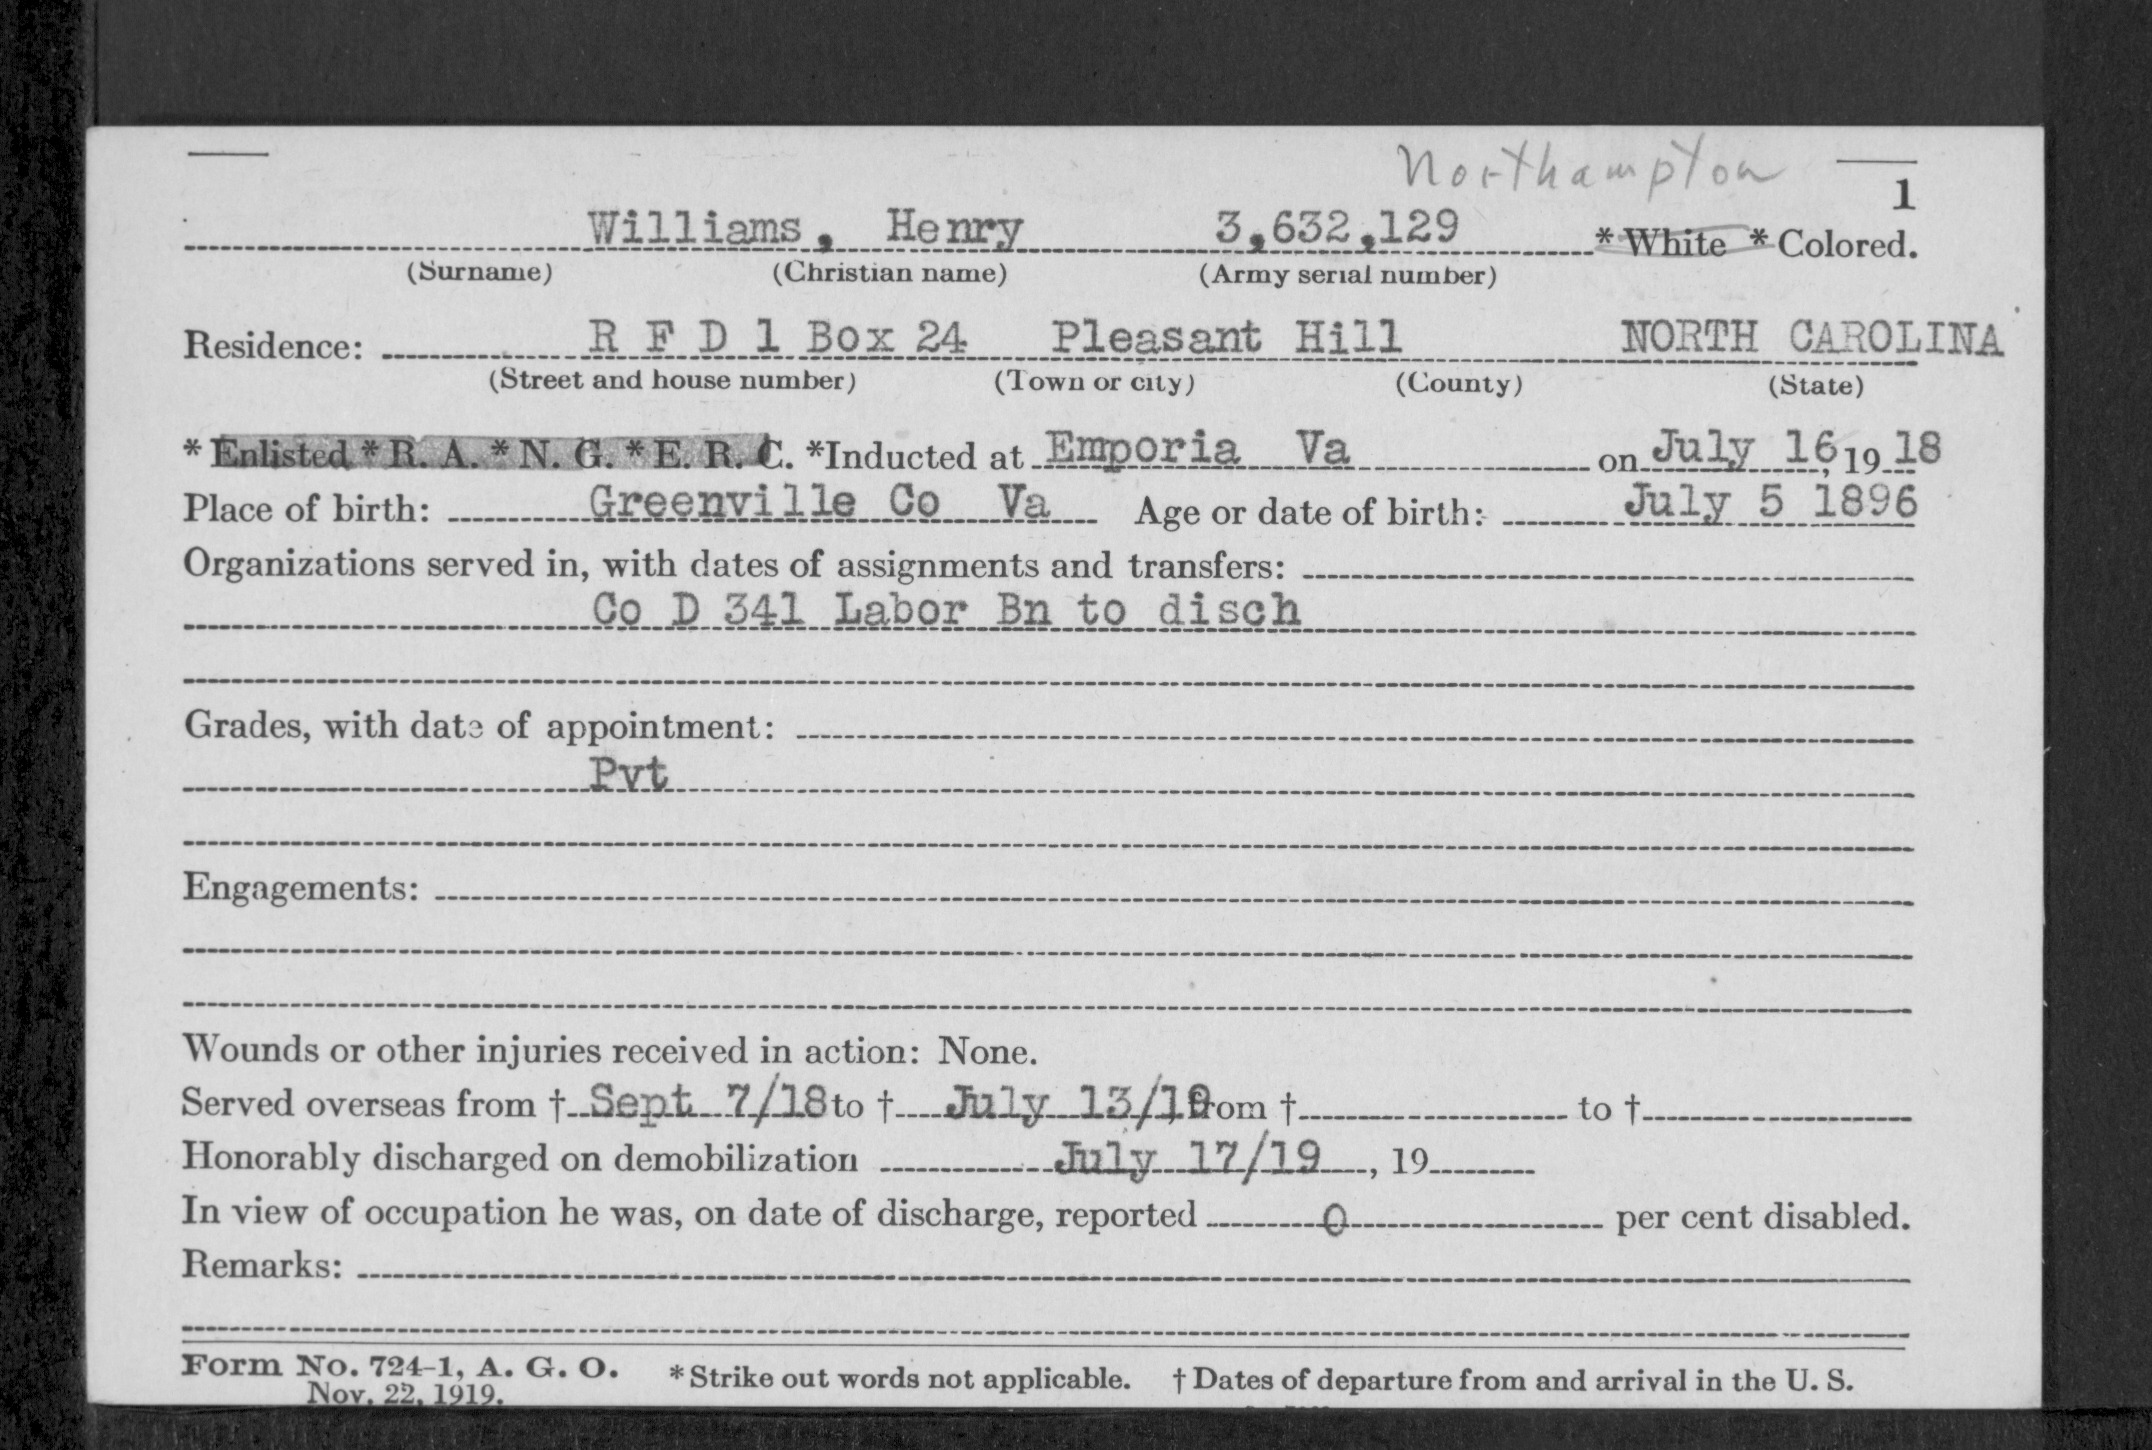 Northampton
1
Williams, Henry 3,632,129 * White * Colored.
(Surname) (Christian name) (Army serial number)
Residence: R F D 1 Box 24 Pleasant Hill NORTH CAROLINA
(Street and house number) (Town or city) (County) (State)
* Enlisted * R. A. * N. G. * E. R. C. *Inducted at Emporia Va on July 16, 19 18
Place of birth: Greenville Co Va Age or date of birth: July 5 1896
Organizations served in, with dates of assignments and transfers:
Co D 341 Labor Bn to disch
Grades, with date of appointment:
Pvt
Engagements:
Wounds or other injuries received in action: None.
Served overseas from † Sept 7/18 to † July 13/19, from † to †
Honorably discharged on demobilization July 17/19, 19
In view of occupation he was, on date of discharge, reported 0 per cent disabled.
Remarks:
Form No. 724-1, A. G. O. * Strike out words not applicable. † Dates of departure from and arrival in the U. S.
Nov. 22, 1919.